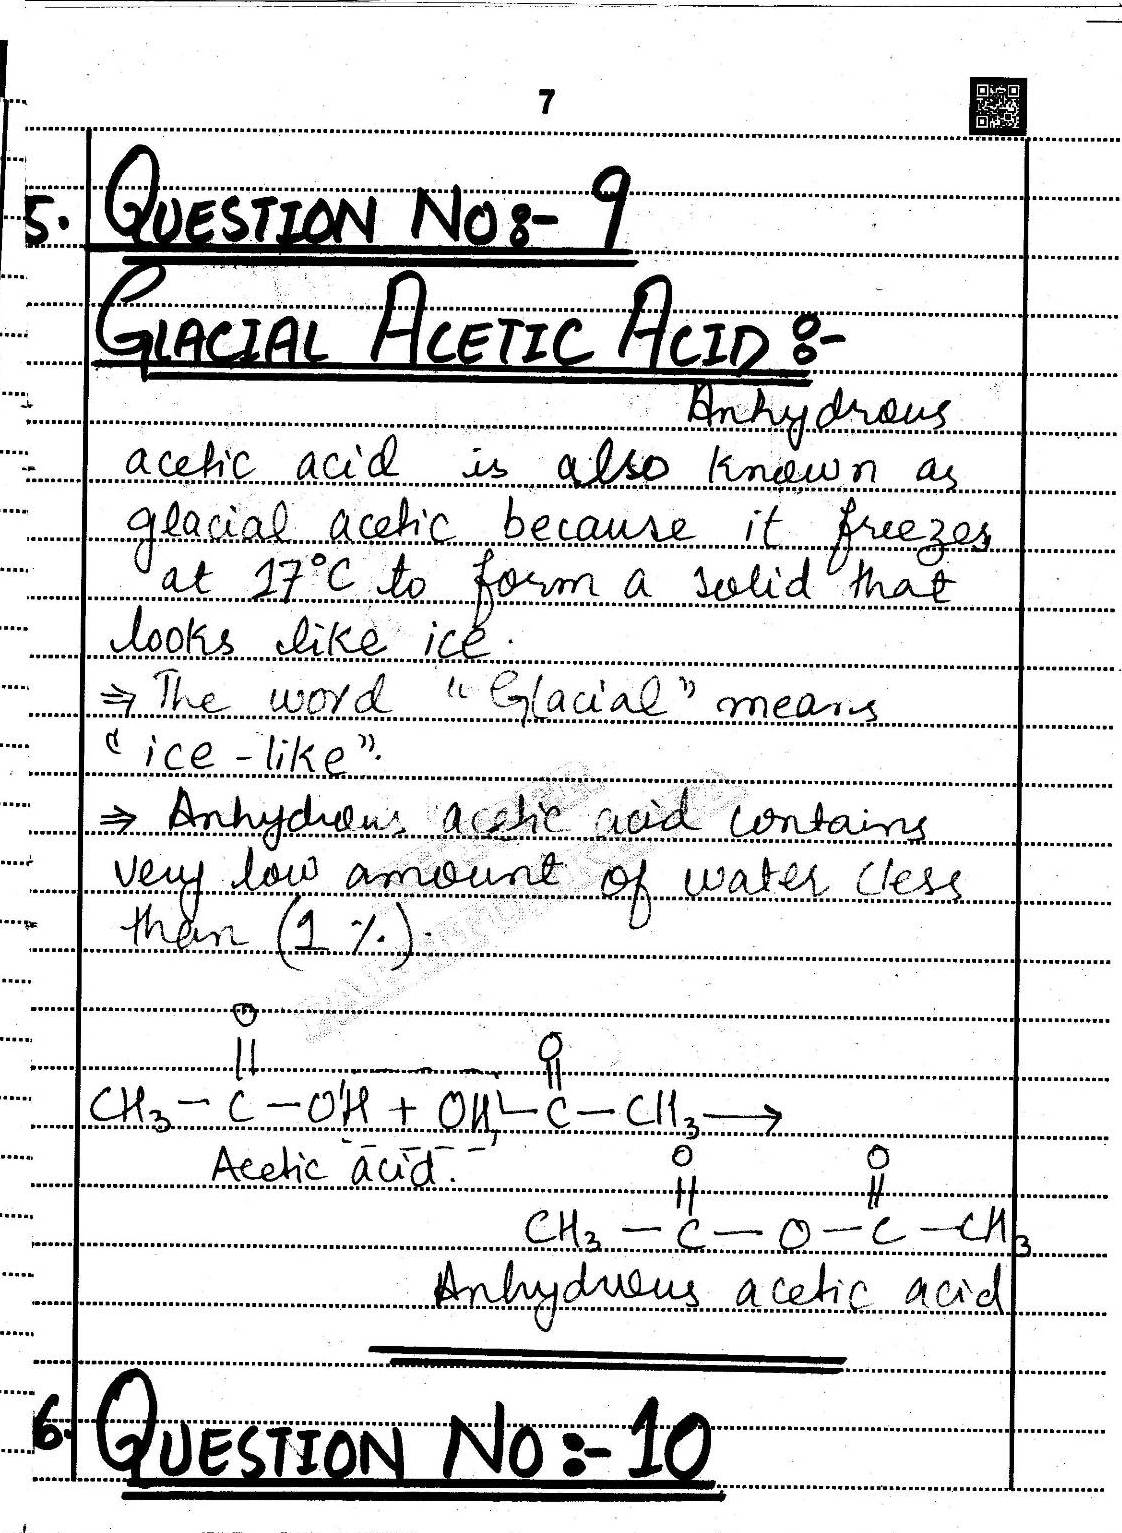 7
5. QUESTION NO:- 9
GLACIAL ACETIC ACID :-
Anhydrous
acetic acid is also known as
glacial acetic because it freezes
at 17°C to form a solid that
looks like ice.
⇒ The word "Glacial" means
"ice-like".
⇒ Anhydrous acetic acid contains
very low amount of water (less
than (1 %).
O
||
O
||
CH₃ — C — OH + OH — C — CH₃ ⟶
Acetic acid.
O O
|| ||
CH₃ — C — O — C — CH₃
Anhydrous acetic acid
6. QUESTION NO:- 10